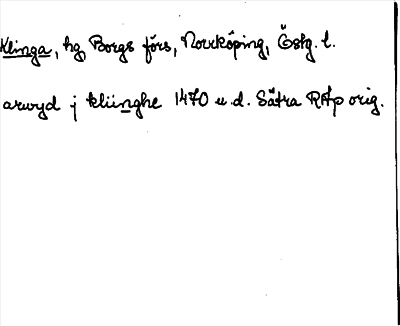 Klinga, hg Borgs förs, Norrköping, Östg. l.
arwyd j kliinghe 1470 u.d. Sätra RAp orig.